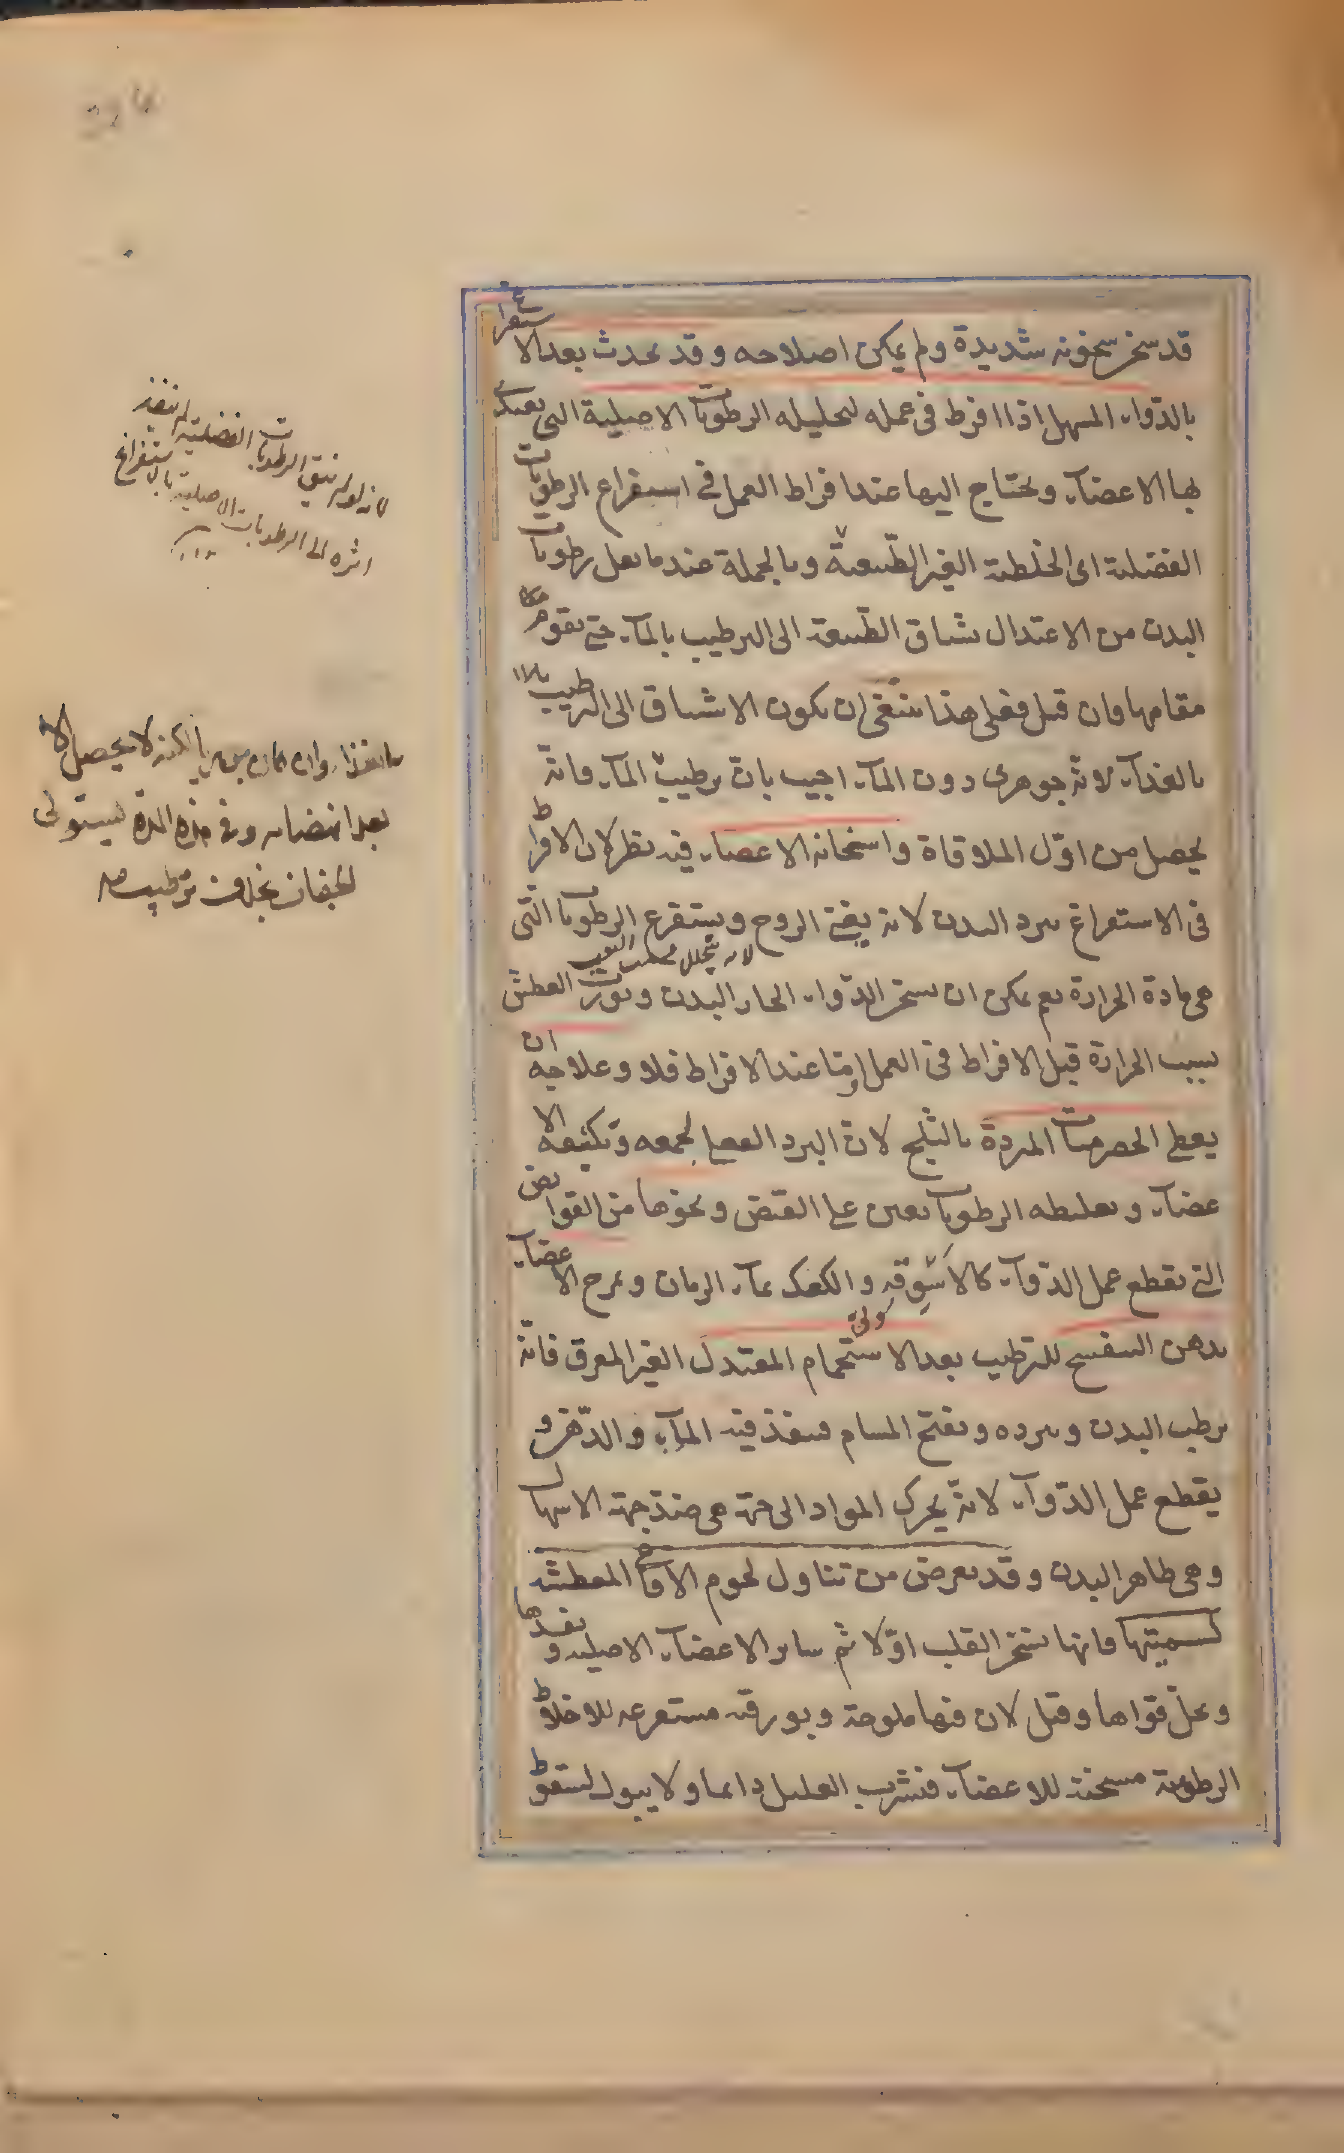 قد سخن سخونه شديدة ولم يمكن اصلاحه وقد يحدث بعد الاستفراغ
بالدواء المسهل اذا افرط فى عمله لتحليله الرطوبات الاصلية التى تعتدى
بها الاعضاء ويحتاج اليها عند افراط العمل فى استفراغ الرطوبات
الفضلية اى الخلطية الغير الطبيعية وبالجملة عندما تعل رطوبات
البدن من الاعتدال تشتاق الطبيعة الى الترطيب بالماء حتى تقوم
مقامها وان قيل فعلى هذا ينبغى ان يكون الاشتياق الى الترطيب
بالغذاء لانه جوهرى دون الماء اجيب بان ترطيب الماء فانه
يحصل من اول الملاقاة واسخانه الاعضاء فيه نظر لان الافراط
فى الاستفراغ يبرد البدن لانه يفنى الروح ويستفرغ الرطوبات التى
لانه يتحلل
هى مادة الحرارة نعم يمكن ان يسخن الدواء الحار البدن ويورث العطش
بسبب الحرارة قبل الافراط فى العمل واما عند الافراط فلا وعلاجه ان
يعطى الحصرميات المبردة بالثلج لان البرد الفعلى لجمعه وتكثيفه الا
عضاء وتغليظه الرطوبات يعين على القبض ونحوها من القوابض
التى تقطع عمل الدواء كالاسوقة والكعك بماء الرمان ويمرح الاعضاء
بدهن البنفسج للترطيب بعد الاستحمام المعتدل الغير المعرق فانه
يرطب البدن ويبرده ويفتح المسام فينفذ فيه الماء والدهن و
يقطع عمل الدواء لانه يحرك المواد الى جهة هى ضد جهة الاسهال
وهى ظاهر البدن وقد يعرض من تناول لحوم الافاعى المعطشه
لسميتها فانها تسخن القلب اولا ثم ساير الاعضاء الاصليه و
ويحل قواها وقيل لان فيها ملوحة وبورقيه مستفرغه للاخلاط
الرطوبية مسخنة للاعضاء فيشرب العليل دايما ولا يبول لسقوط
لانه لو لم تبق الرطوبات الفضلية لم ينفذ
اثره الى الرطوبات الاصلية بالاستفراغ
لكنه لا يحصل الا
بعد انهضامه وفى هذه المدة يستولى
الجفاف بخلاف ترطيب